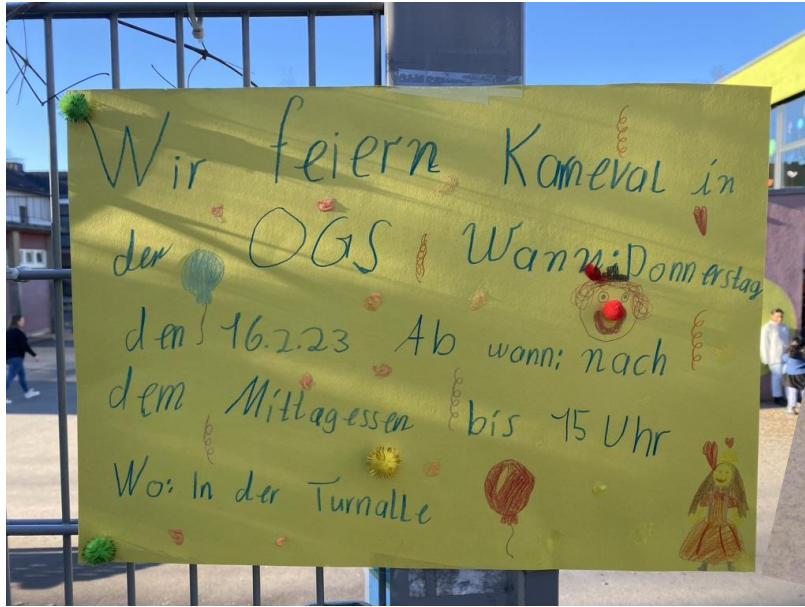 Wir feiern Karneval in
der OGS Wann: Donnerstag
den 16.2.23 Ab wann: nach
dem Mittagessen bis 15 Uhr
Wo: In der Turnalle